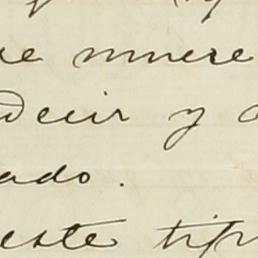 re muere
decir y
ado.
este tip